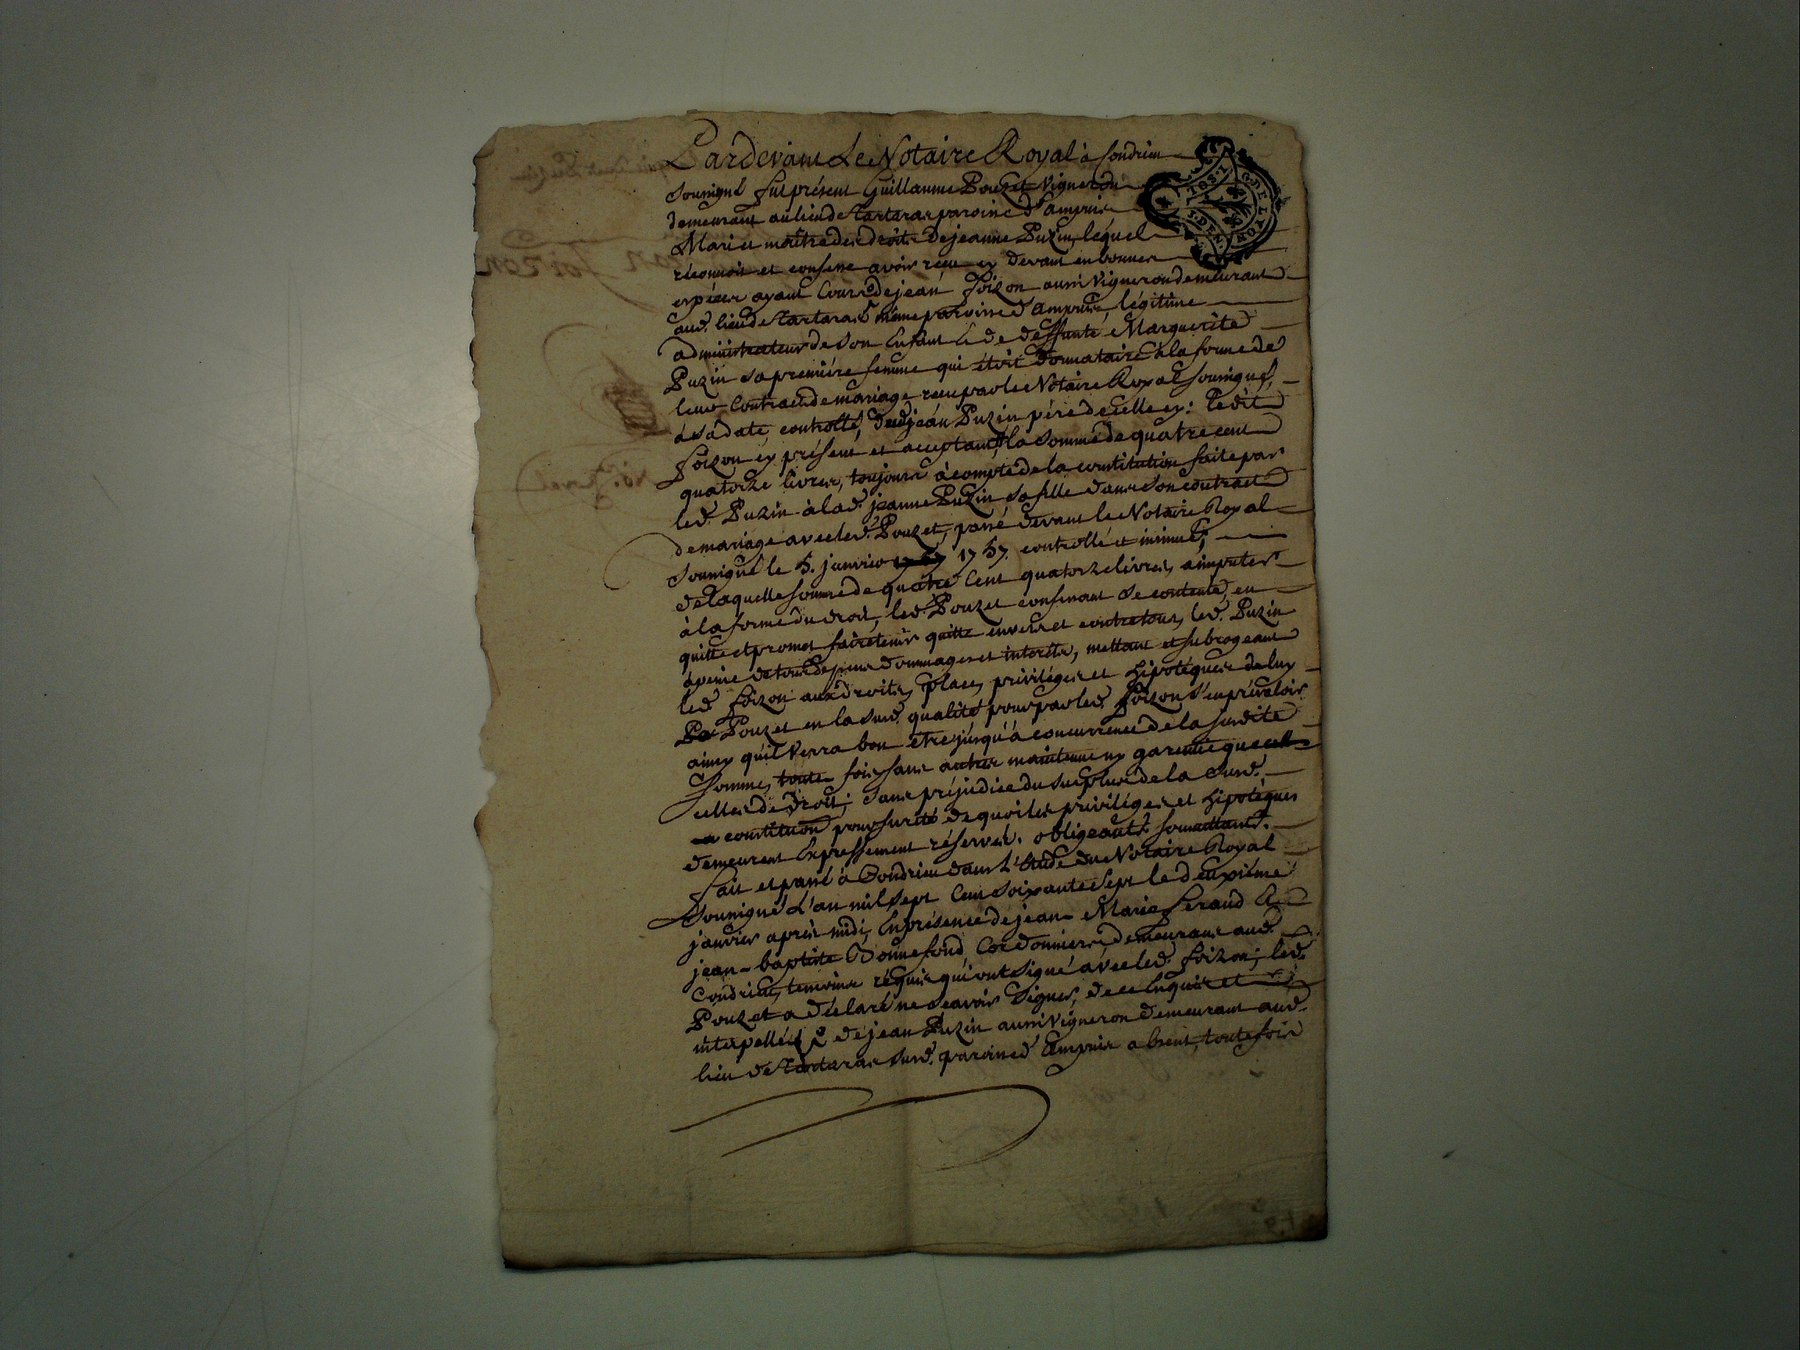 Pardevant Le Notaire Royal à Condrieu
Soussigné fut présent Guillaume Pouzet vigneron
demeurant au lieu de Tartaras paroisse d'ampuis
Mari et maître des droits de jeanne Puzin, lequel
reconnoit et confesse avoir receu cy devant en bonnes
espèces ayant cours de jean Foizon aussi vigneron demeurant
aud. lieu de Tartaras même paroisse d'ampuis, légitime
administrateur de son Enfant & de deffunte Marguerite
Puzin sa première femme qui étoit donnataire à la forme de
leur Contract de mariage receu par le Notaire Royal soussigné,
à sa date, controllé, dud. jean Puzin père de celle cy: ledit
foizon cy présent et acceptant, la somme de quatre cent
quatorze livres, toujours à compte de la constitution faite par
led. Puzin à lad. jeanne Puzin sa fille dans son contract
de mariage avec led. Pouzet, passé devant le Notaire Royal
soussigné le 5. janvier 1757. controllé et insinué;
de laquelle somme de quatre Cent quatorze livres, à imputer
à la forme du droit, led. Pouzet confessant se contente, en
quitte et promet faire tenir quitte envers et contre tous, led. Puzin
à peine de tous dépens dommages et interêts, mettant et subrogeant
led. foizon aux droits, place, privilèges et hipotéques de luy
Pouzet en la susd. qualité pour par led. foizon s'en prévaloir
ainsy qu'il verra bon être jusqu'à concurrence de la susdite
Somme, toute fois sans autres maintenue ny garentie que
celles de droit; sans préjudice du surplus de la susd.
constitution pour sureté de quoi les privilèges et hipotéques
demeurent Expressement réservés. obligeants. soumettants.
fait et passé à Condrieu dans L'étude du Notaire Royal
Soussigné L'an mil sept Cent soixante sept le deuxième
janvier après midi, En présence de jean-Marie feraud &
jean-baptiste Bonnefond, Cordonniers demeurans aud.
Condrieu, temoins réquis qui ont signé avec led. foizon; led.
Pouzet a déclaré ne scavoir signer, de ce Enquis et
interpellé de jean Puzin aussi vigneron demeurant aud.
lieu de Tartaras susd. paroisse d'Ampuis absent, toutefois